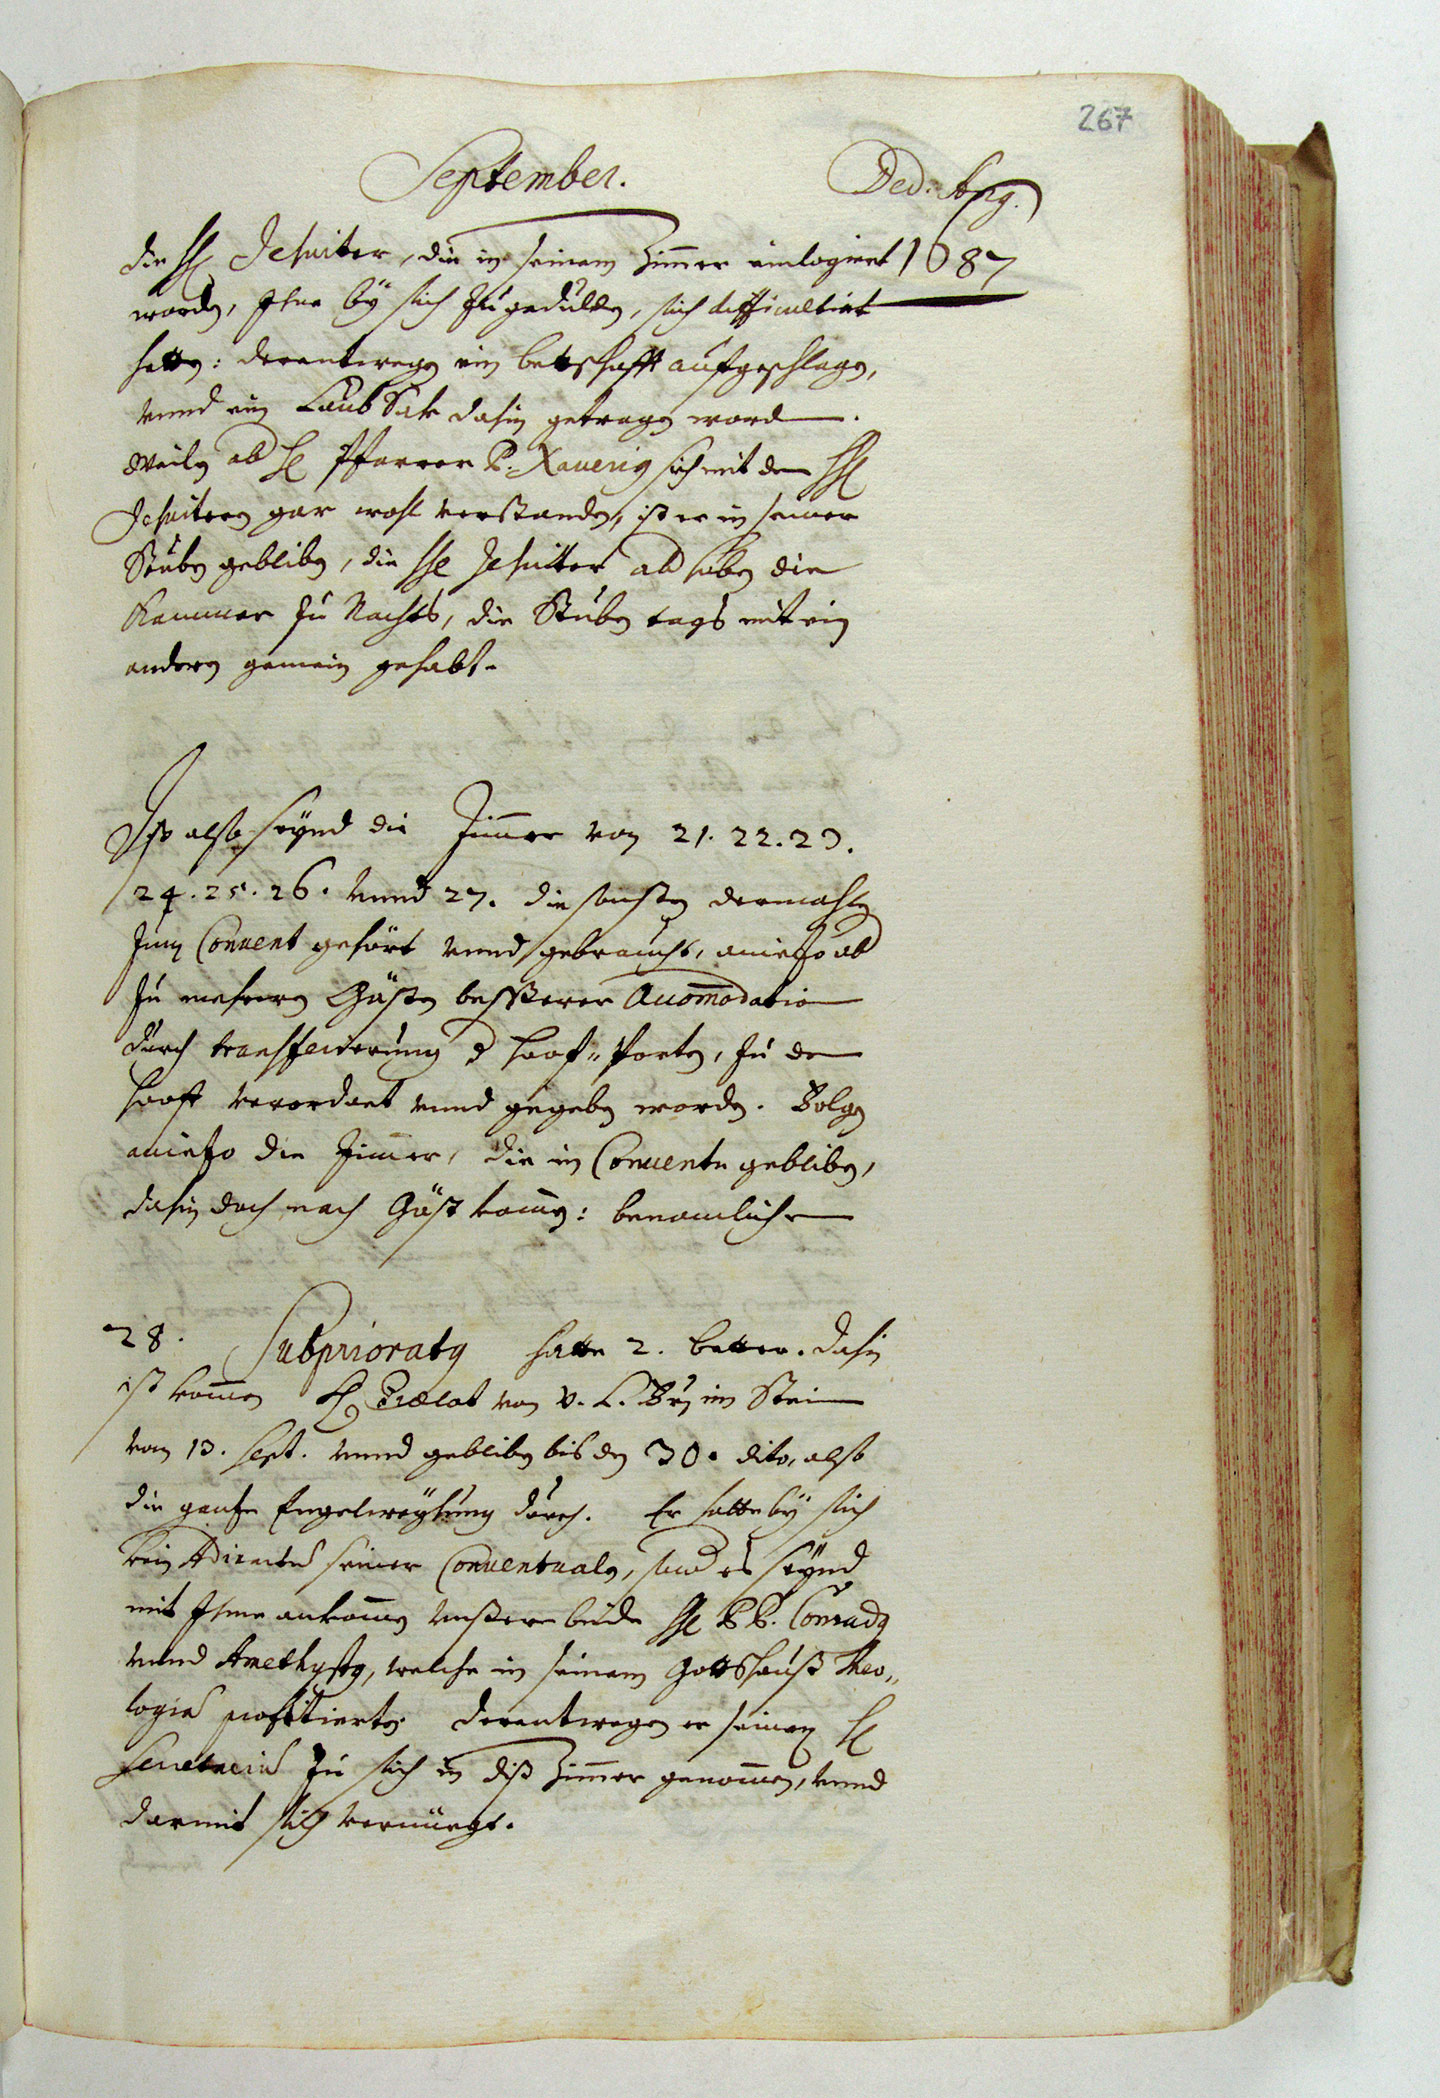 267
September. Ded. Ang.
die HH Jesuiter, die in seinem Zimmer einlogiert 1687
worden, Ihne by sich zu gedulden, sich difficultiert
hetten: derentwegen ein bettschafft aufgeschlagen,
unnd ein Laub Sak dahin getragen worden.
Weilen aber H Pfarrer P. Xauerius sich mit den HH
Jesuitern gar wohl verstanden, ist er in seiner
Stuben gebliben, die HH Jesuitter aber haben die
Kammer zu Nachts, die Stuben tags mit ein
andern gemein gehabt.
Iso also seynd die Zimmer von 21. 22. 23.
24. 25. 26. unnd 27. die sonsten dermahlen
zum Conuent gehört unnd gebraucht, aniezo aber
zu mehrern Gästen besserer Accomodation
durch transferierung der hoof-Porten, zu dem
hooff verordnet unnd gegeben worden. Volgen
aniezo die Zimmer, die in Conuentu gebliben,
dahin doch auch Gäst komen: benamlichen
28. Subprioratus hatte 2. better. dahin
ist komen H Praelat von U. L. Frauen im Stein
vom 13. Sept. unnd gebliben bis den 30. dito, also
die ganze Engelweyhung durch. Er hatte by sich
kein seiner Conuentualen, sonder es seynd
mit Ihme ankomen unsere beide HH PP. Conradus
unnd Amethystus, welche in seinem Gottshauß Theo-
logiam profitierten. derentwegen er seinen H
Secretarium zu sich in diß Zimmer genomen, unnd
darmit sich vernüegt.